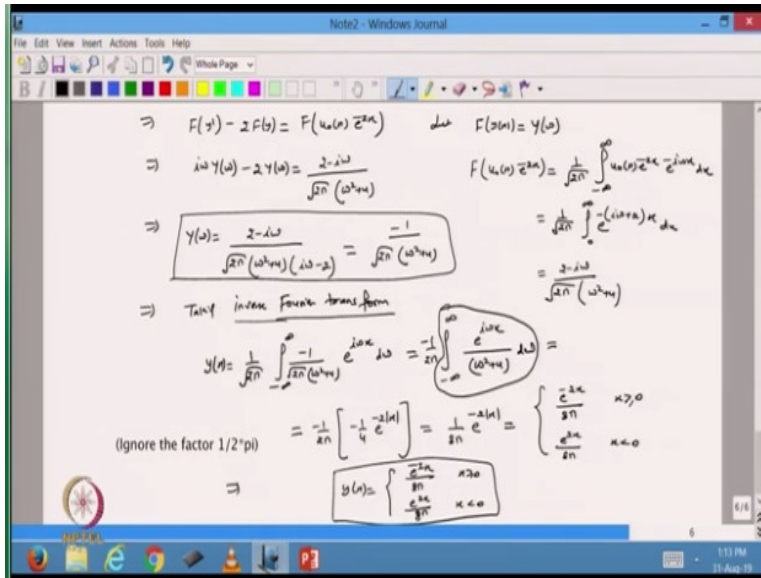 Note2 - Windows Journal
File Edit View Insert Actions Tools Help
Whole Page
⇒ F(y') - 2F(y) = F(u₀(x) e^{-2x}) let F(y(x)) = Y(ω)
⇒ iω Y(ω) - 2Y(ω) = (2-iω)/(√(2π) (ω²+4)) F(u₀(x) e^{-2x}) = 1/√(2π) ∫_{-∞}^{∞} u₀(x) e^{-2x} e^{-iωx} dx
= 1/√(2π) ∫_0^∞ e^{-(iω+2)x} dx
⇒ Y(ω) = (2-iω)/(√(2π) (ω²+4)(iω-2)) = -1/(√(2π) (ω²+4))
= (2-iω)/(√(2π) (ω²+4))
⇒ Taking inverse Fourier transform
y(x) = 1/√(2π) ∫_{-∞}^{∞} -1/(√(2π)(ω²+4)) e^{iωx} dω = -1/2π ∫_{-∞}^{∞} e^{iωx}/(ω²+4) dω =
= -1/2π [-1/4 e^{-2|x|}] = 1/8π e^{-2|x|} = { e^{-2x}/8π x≥0
e^{2x}/8π x<0
(Ignore the factor 1/2*pi)
⇒ y(x) = { e^{-2x}/8π x≥0
e^{2x}/8π x<0
NPTEL
6/6
6
1:13 PM
31-Aug-19